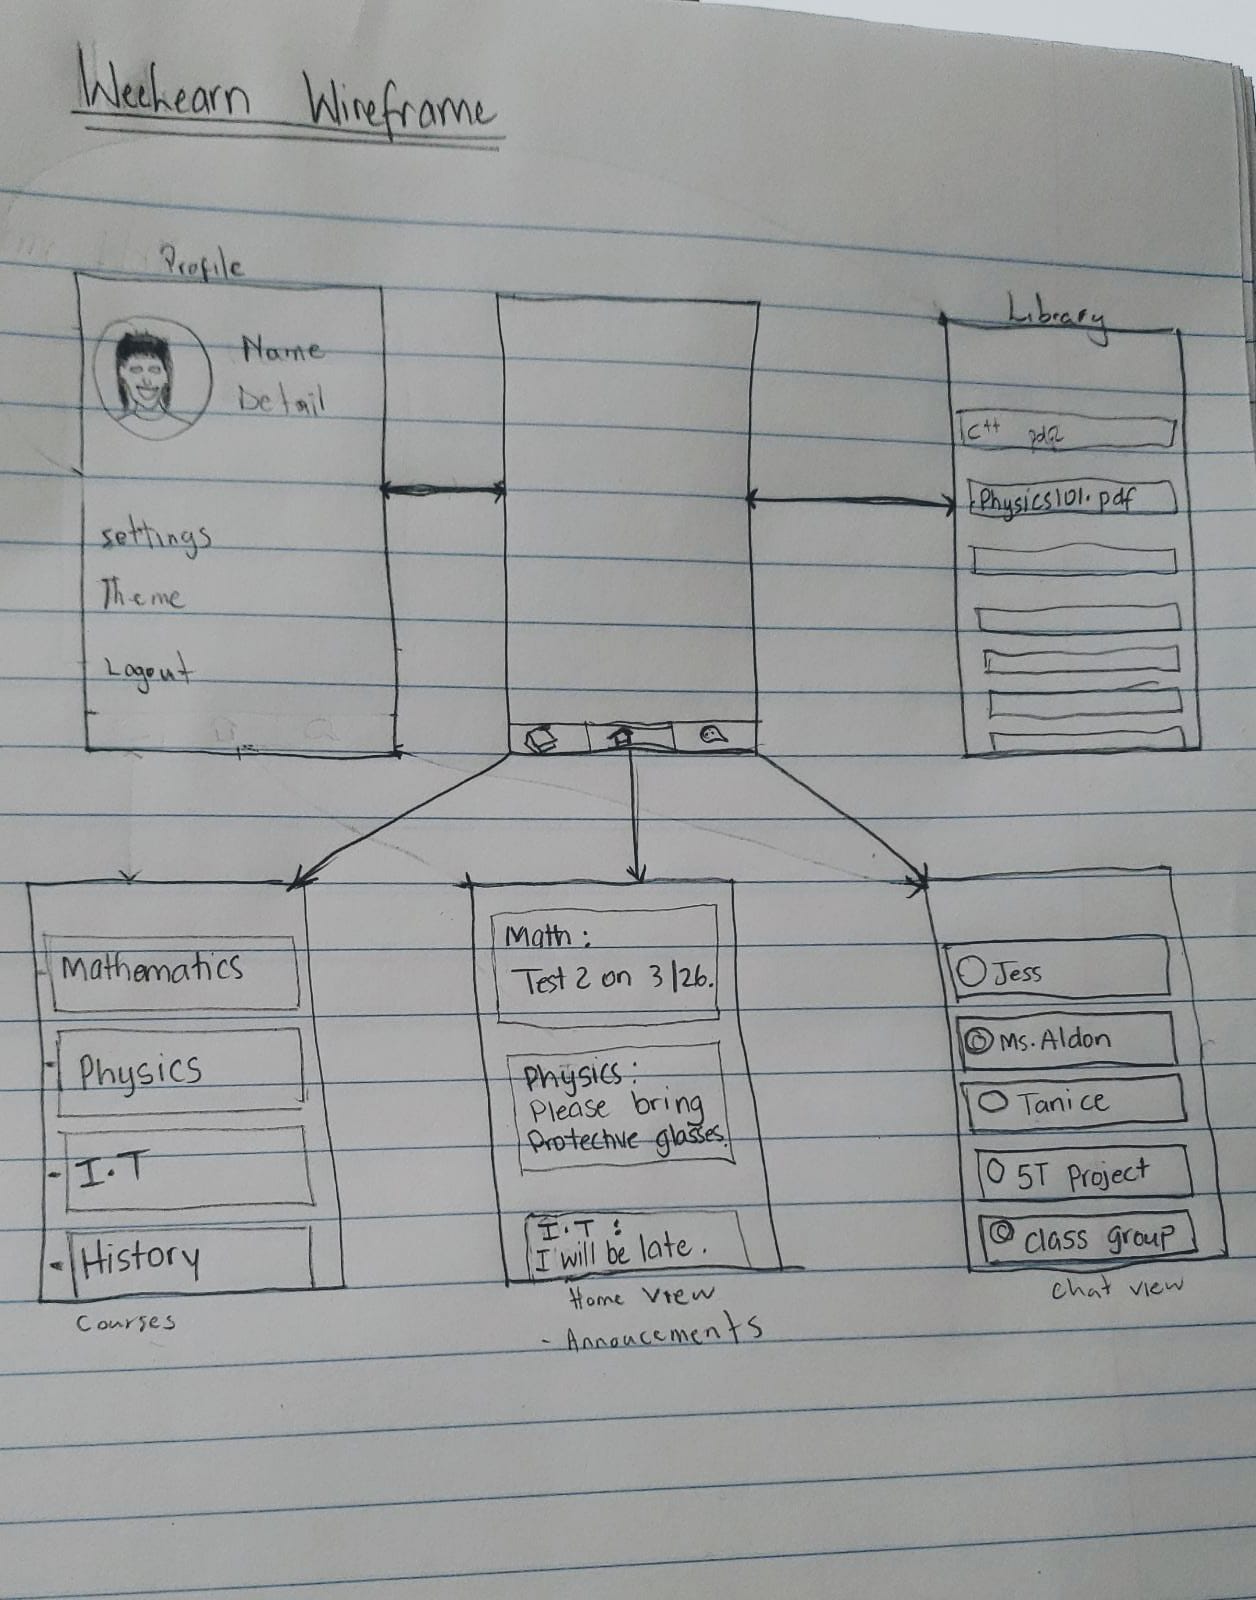 Weelearn Wireframe
Profile
Name
Detail
settings
Theme
Logout
Library
C++
Physics101.pdf
Mathematics
Physics
I.T
History
Courses
Math:
Test 2 on 3/26.
Physics:
Please bring
Protective glasses.
I.T :
I will be late.
Home view
- Annoucements
Jess
Ms. Aldon
Tanice
5T Project
class group
Chat view